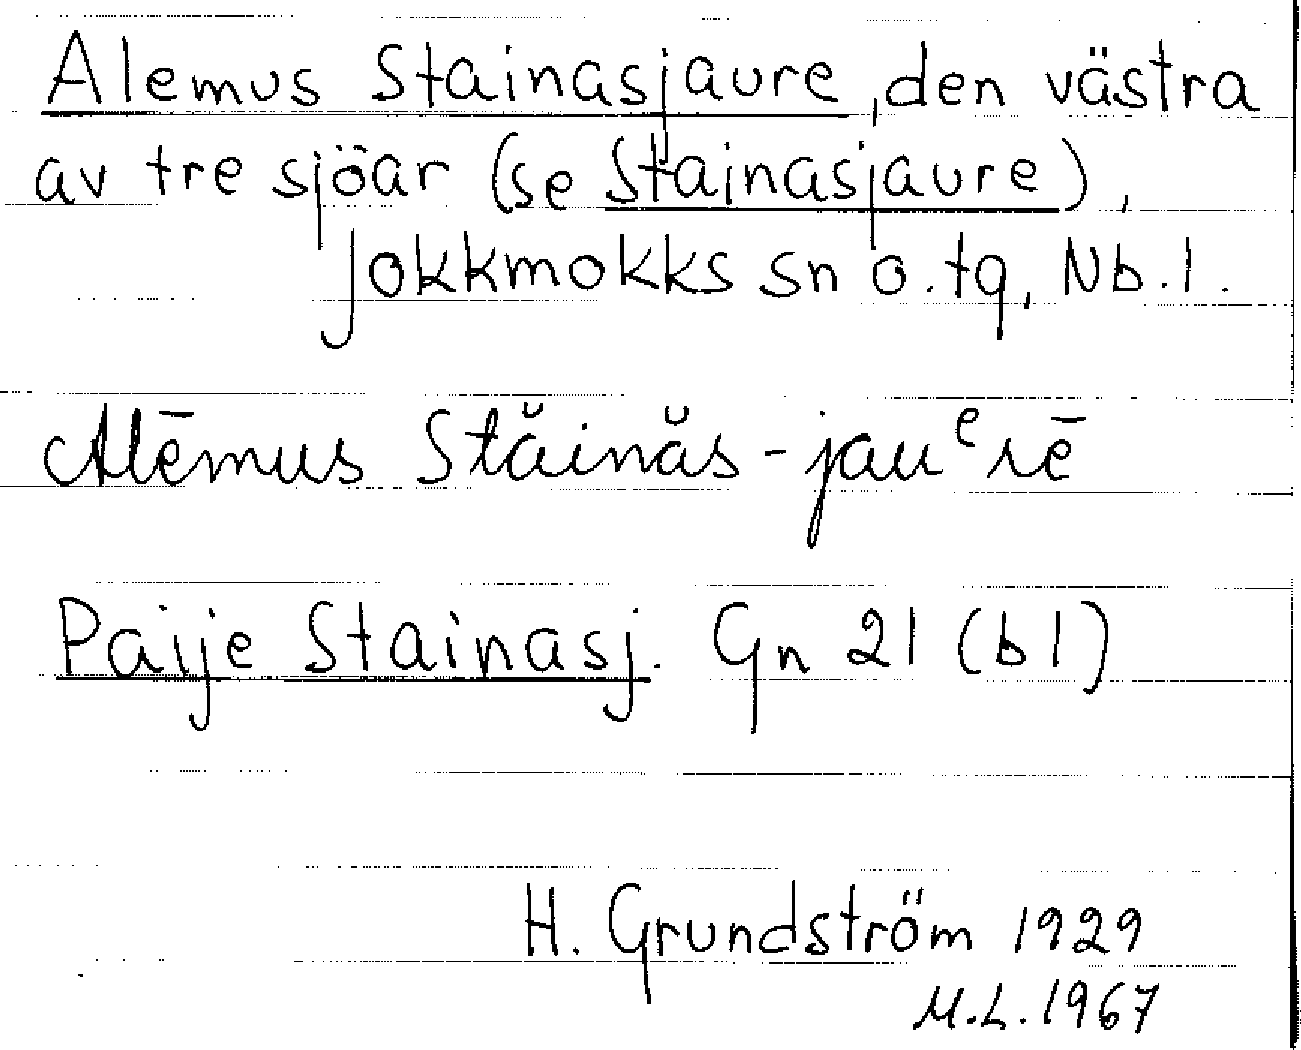 Alemus Stainasjaure, den västra
av tre sjöar (se Stainasjaure),
Jokkmokks sn o. tg, Nb. l.
Alēmus Stăinăs-jauᵉrē
Paije Stainasj. Gn 21 (bl)
H. Grundström 1929
M.L. 1967